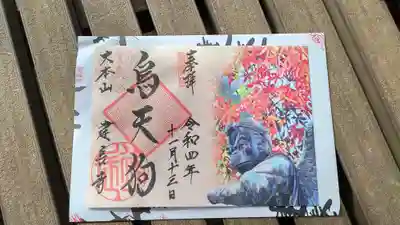 奉拝
令和四年
十一月十三日
烏天狗
大本山
建長寺